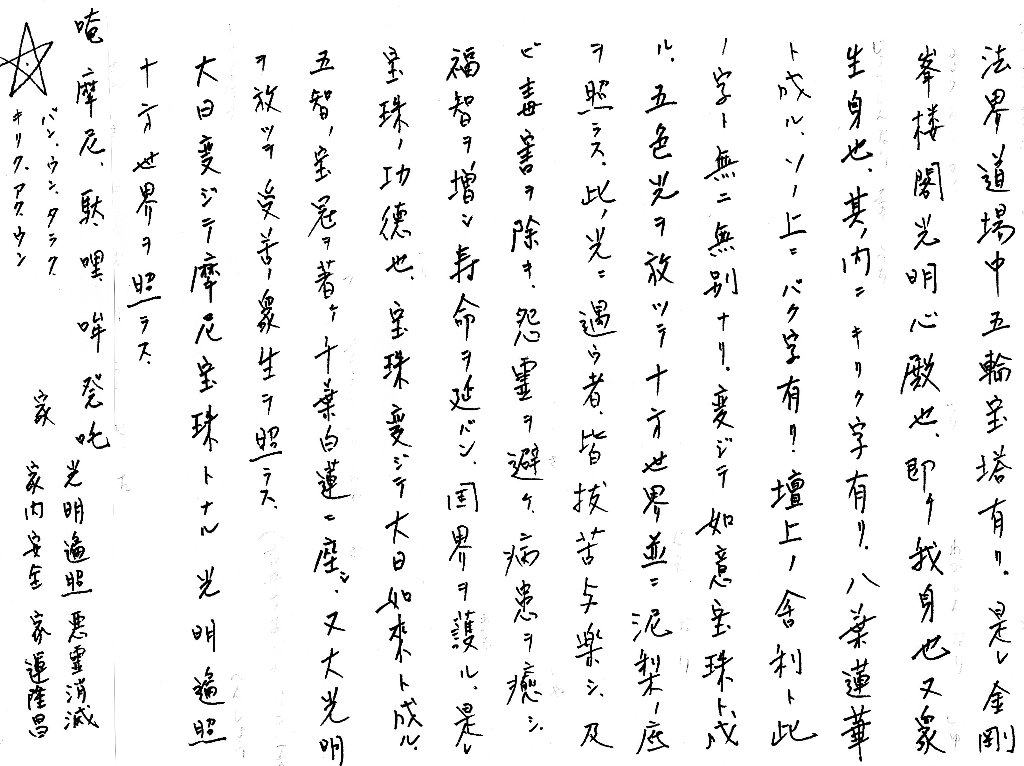 法界道場中五輪宝塔有リ。是レ金剛
峯楼閣光明心殿也、即チ我身也又衆
生身也、其ノ内ニキリク字有リ。八葉蓮華
ト成ル、ソノ上ニバク字有リ。壇上ノ舎利ト此
ノ字ト無二無別ナリ。変ジテ如意宝珠ト成
ル、五色光ヲ放ツテ十方世界並ニ泥梨ノ底
ヲ照ラス、此ノ光ニ遇ウ者、皆抜苦与楽シ、及
ビ毒害ヲ除キ、怨霊ヲ避ケ、病患ヲ癒シ、
福智ヲ増シ寿命ヲ延バシ、国界ヲ護ル、是レ
宝珠ノ功徳也、宝珠変ジテ大日如来ト成ル、
五智ノ宝冠ヲ著ケ千葉白蓮ニ座シ、又大光明
ヲ放ツテ受苦ノ衆生ヲ照ラス、
大日変ジテ摩尼宝珠トナル光明遍照
十方世界ヲ照ラス、
唵摩尼、駄哩、吽発吒
バン、ウン、タラク
キリク、アク、ウン
光明遍照悪霊消滅
家
家内安全家運隆昌